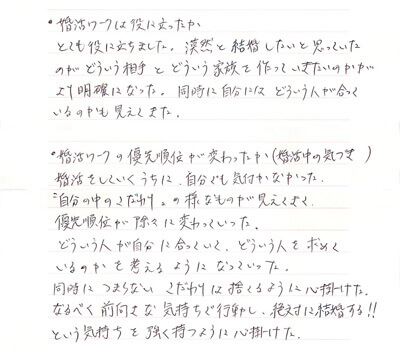 ・婚活ワークは役に立ったか
とても役に立ちました。漠然と結婚したいと思っていた
のがどういう相手とどういう家族を作っていきたいのかが
より明確になった。同時に自分にはどういう人が合って
いるのかも見えてきた。
・婚活ワークの優先順位が変わったか(婚活中の気づき )
婚活をしていくうちに、自分でも気付かなかった
"自分の中のこだわり"の様なものが見えてきて
優先順位が除々に変わっていった。
どういう人が自分に合っていて、どういう人を求めて
いるのかを考えるようになっていった。
同時につまらないこだわりは捨てるように心掛けた。
なるべく前向きな気持ちで行動し、絶対に結婚する!!
という気持ちを強く持つように心掛けた。